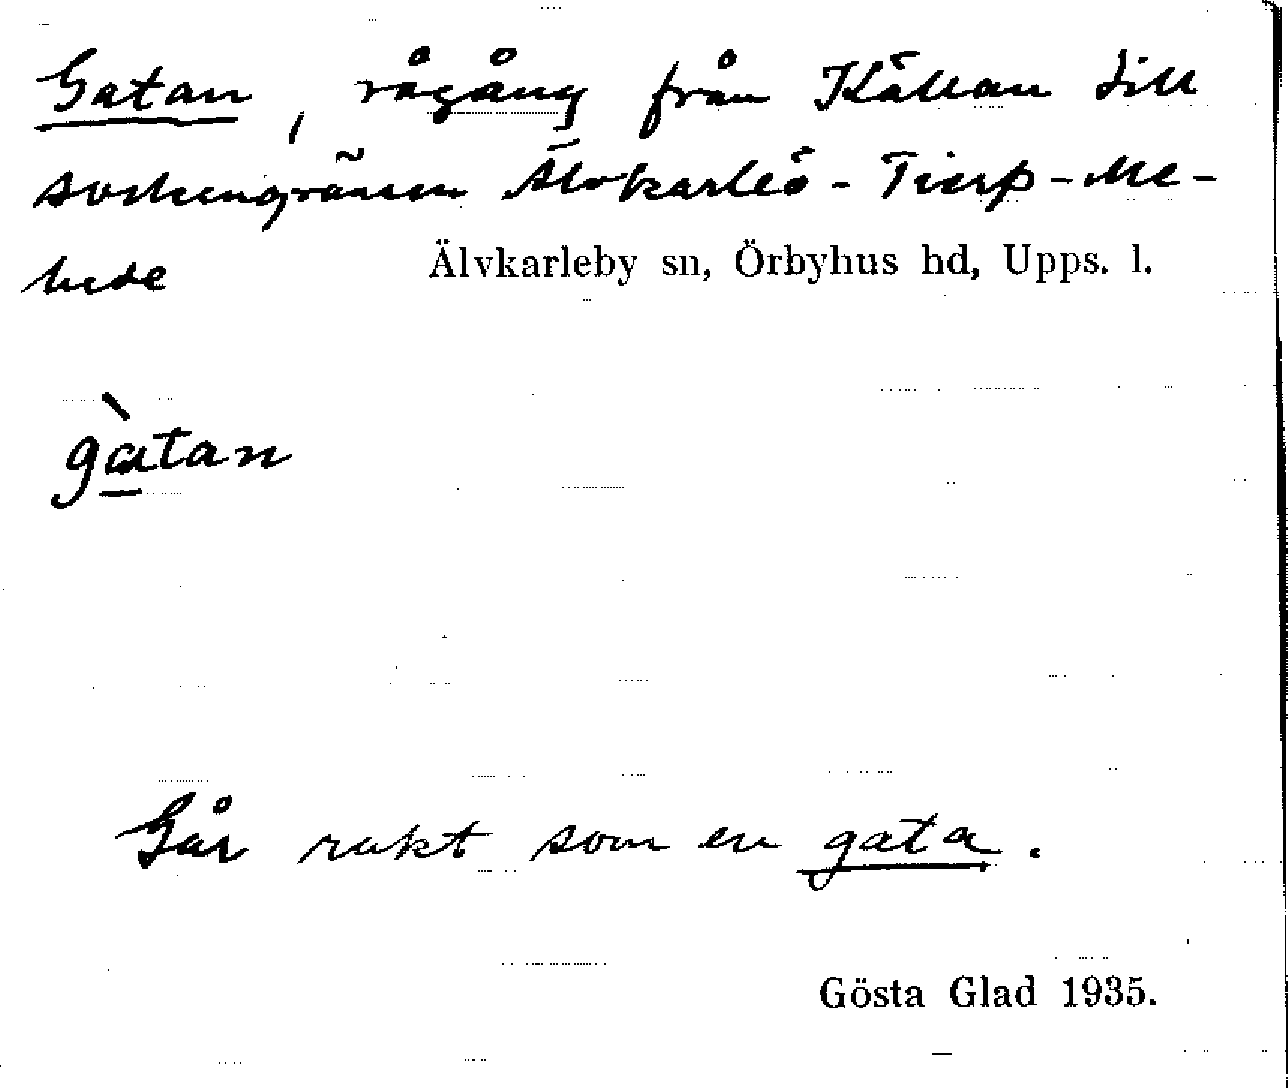 Gatan, rågång från Källan till
sockengränsen Älvkarleö-Tierp-Me-
hede
Älvkarleby sn, Örbyhus hd, Upps. l.
gàtan
Går rakt som en gata.
Gösta Glad 1935.